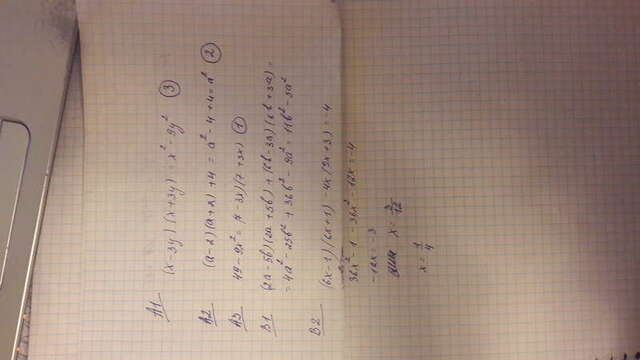 A1 (x-3y)(x+3y) = x² - 9y² ③
A2 (a-2)(a+2)+4 = a²-4+4 = a² ②
A3 49-9x² = (7-3x)(7+3x) ①
B1 (2a-5b)(2a+5b)+(6b-3a)(6b+3a) =
= 4a²-25b²+36b²-9a² = 11b²-5a²
B2 (6x-1)(6x+1)-4x(9x+3) = -4
36x²-1-36x²-12x = -4
-12x = -3
x = 3/12
x = 1/4